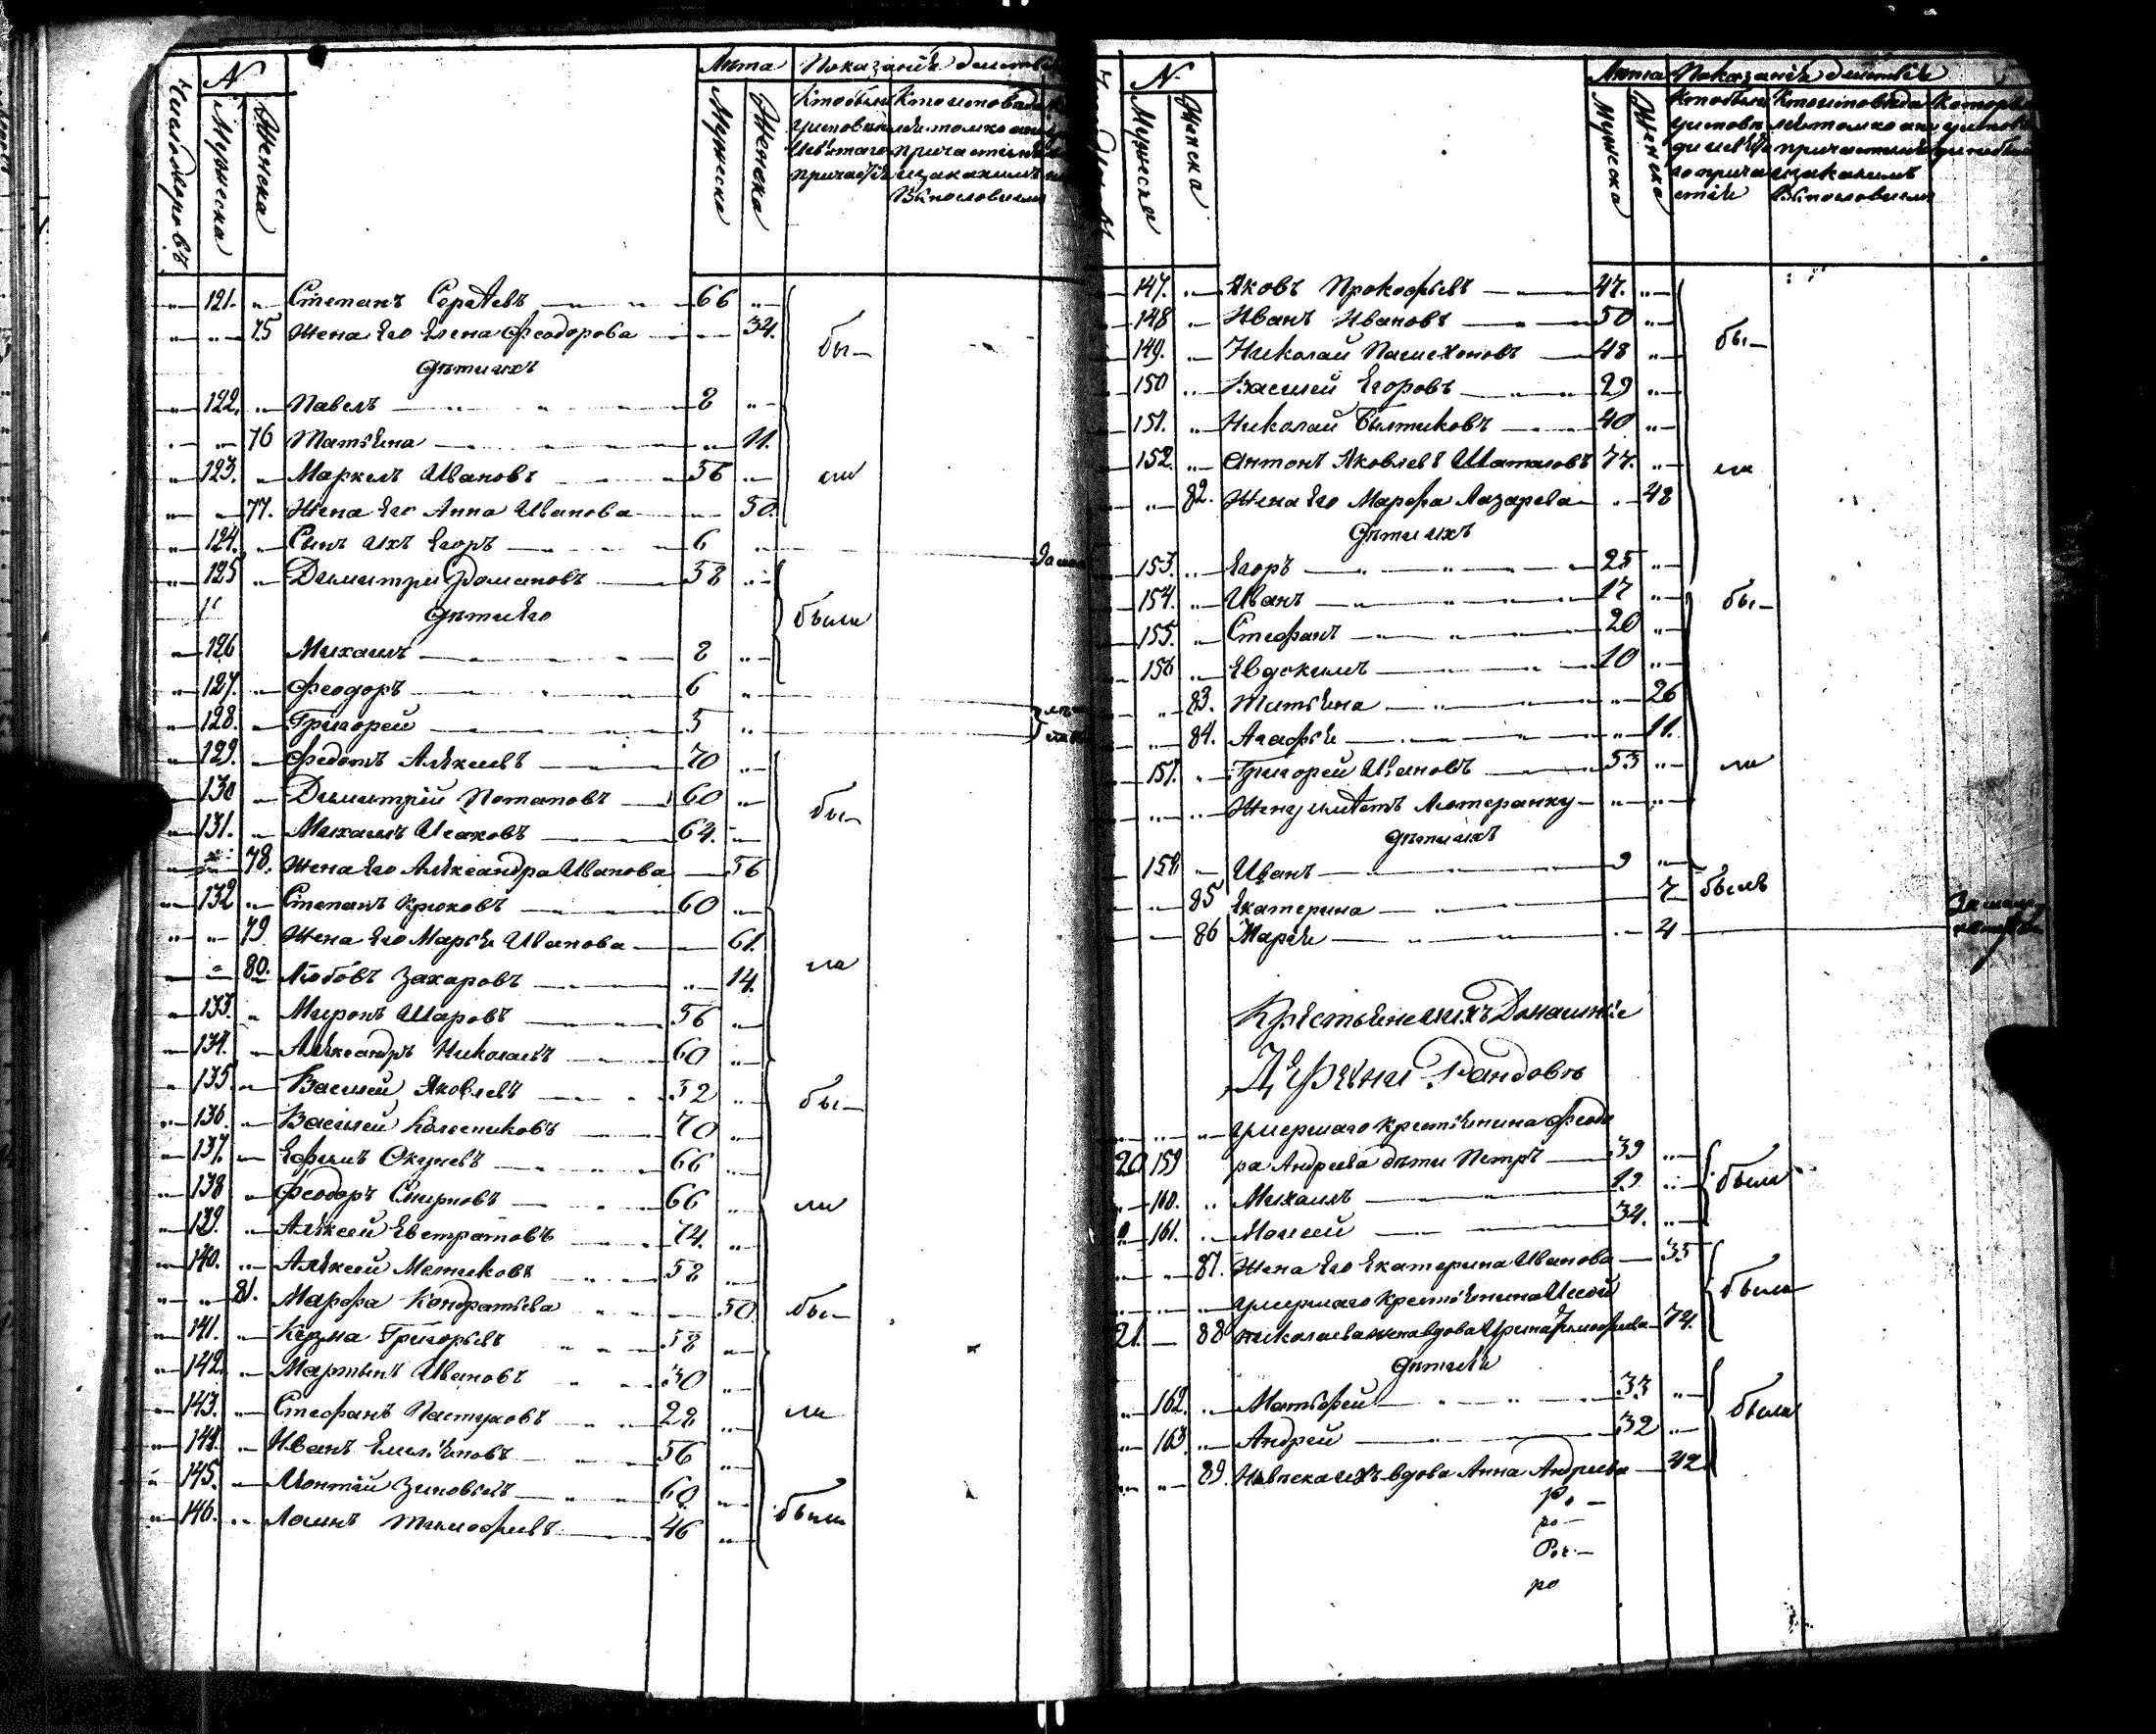 N Лѣта Показаніе дѣйств
Число дворовъ
Мужеска
Женска
Мужеска
Женска
Кто былъ Кто исповѣда
у исповѣди лся токмо а не
и св҃таго причастился
причастія и за какимъ
винословіемъ
121. Степанъ Сергѣевъ 66
75 Жена Его Елена Феодорова 34. бы-
Дѣти ихъ
122. Павелъ 8
76 Татьяна 11.
123. Маркелъ Ивановъ 56 ли
77. Жена Его Анна Иванова 50.
124. Сынъ ихъ Егоръ 6
125 Димитри Романовъ 38
Дѣти Его были
126 Михаилъ 8
127. Феодоръ 6
128. Григорей 5
129. Федотъ Алексеевъ 70
130 Димитрій Потаповъ 60 бы-
131. Михаилъ Исаковъ 64.
78. Жена Его Александра Иванова 56
132 Степанъ Крюковъ 60
79 Жена Его Марья Иванова 61.
80. Любовъ Захаровъ 14. ли
133. Миронъ Шаровъ 56
134. Александръ Николаевъ 60
135. Василей Яковлевъ 32 бы-
136. Василей Колесниковъ 70
137. Ефимъ Окуневъ 66
138 Феодоръ Смирновъ 66 ли
139. Алексей Евстратовъ 74.
140. Алексей Мотиковъ 58
81. Марфа Кондратьева 50 бы-
141. Кузма Григорьевъ 58
142. Мартынъ Ивановъ 30
143. Стефанъ Пастуховъ 28 ли
144. Иванъ Емельяновъ 56
145. Леонтий Зиновьевъ 60
146. Логинъ Тимофеевъ 46 были
N Лѣта Показаніе дѣйствіе
Мужеска
Женска
Мужеска
Женска
Кто былъ Кто исповѣда Которы
у исповѣ лся токмо а не у исповѣ
ди и св҃та причастился ди не были
го прича и за какимъ
стія винословіемъ
147. Яковъ Прокофьевъ 47.
148 Иванъ Ивановъ 50 бы-
149. Николай Пашехоновъ 48
150 Василей Егоровъ 29
151. Николай Бытиковъ 40
152. Антонъ Яковлевъ Шаталовъ 77. ли
82. Жена Его Марфа Лазарева 48
Дѣти ихъ
153. Егоръ 25
154. Иванъ 17 бы-
155. Стефанъ 20
156 Евдокимъ 10
83. Татьяна 26
84. Агафья 11.
157. Григорей Ивановъ 53 ли
Жену имѣетъ Лютеранку
Дѣти ихъ
158 Иванъ 9
85 Екатерина 7 были
86 Марья 4
Крестьяне и ихъ Домашніе
Деревни Рандовъ
умершаго крестьянина Феодо
20 159 ра Андреева дѣти Петръ 39
160. Михаилъ 19 были
161. Моисей 34.
87. Жена Его Екатерина Иванова 35
умершаго крестьянина Исай были
21. 88 Николаева жена вдова Ирина Тимофеева 74.
Дѣти Ея
162. Матьфей 33
163. Андрей 32 были
89. Невѣска ихъ вдова Анна Андреева 42
ро
ро
Ро
ро